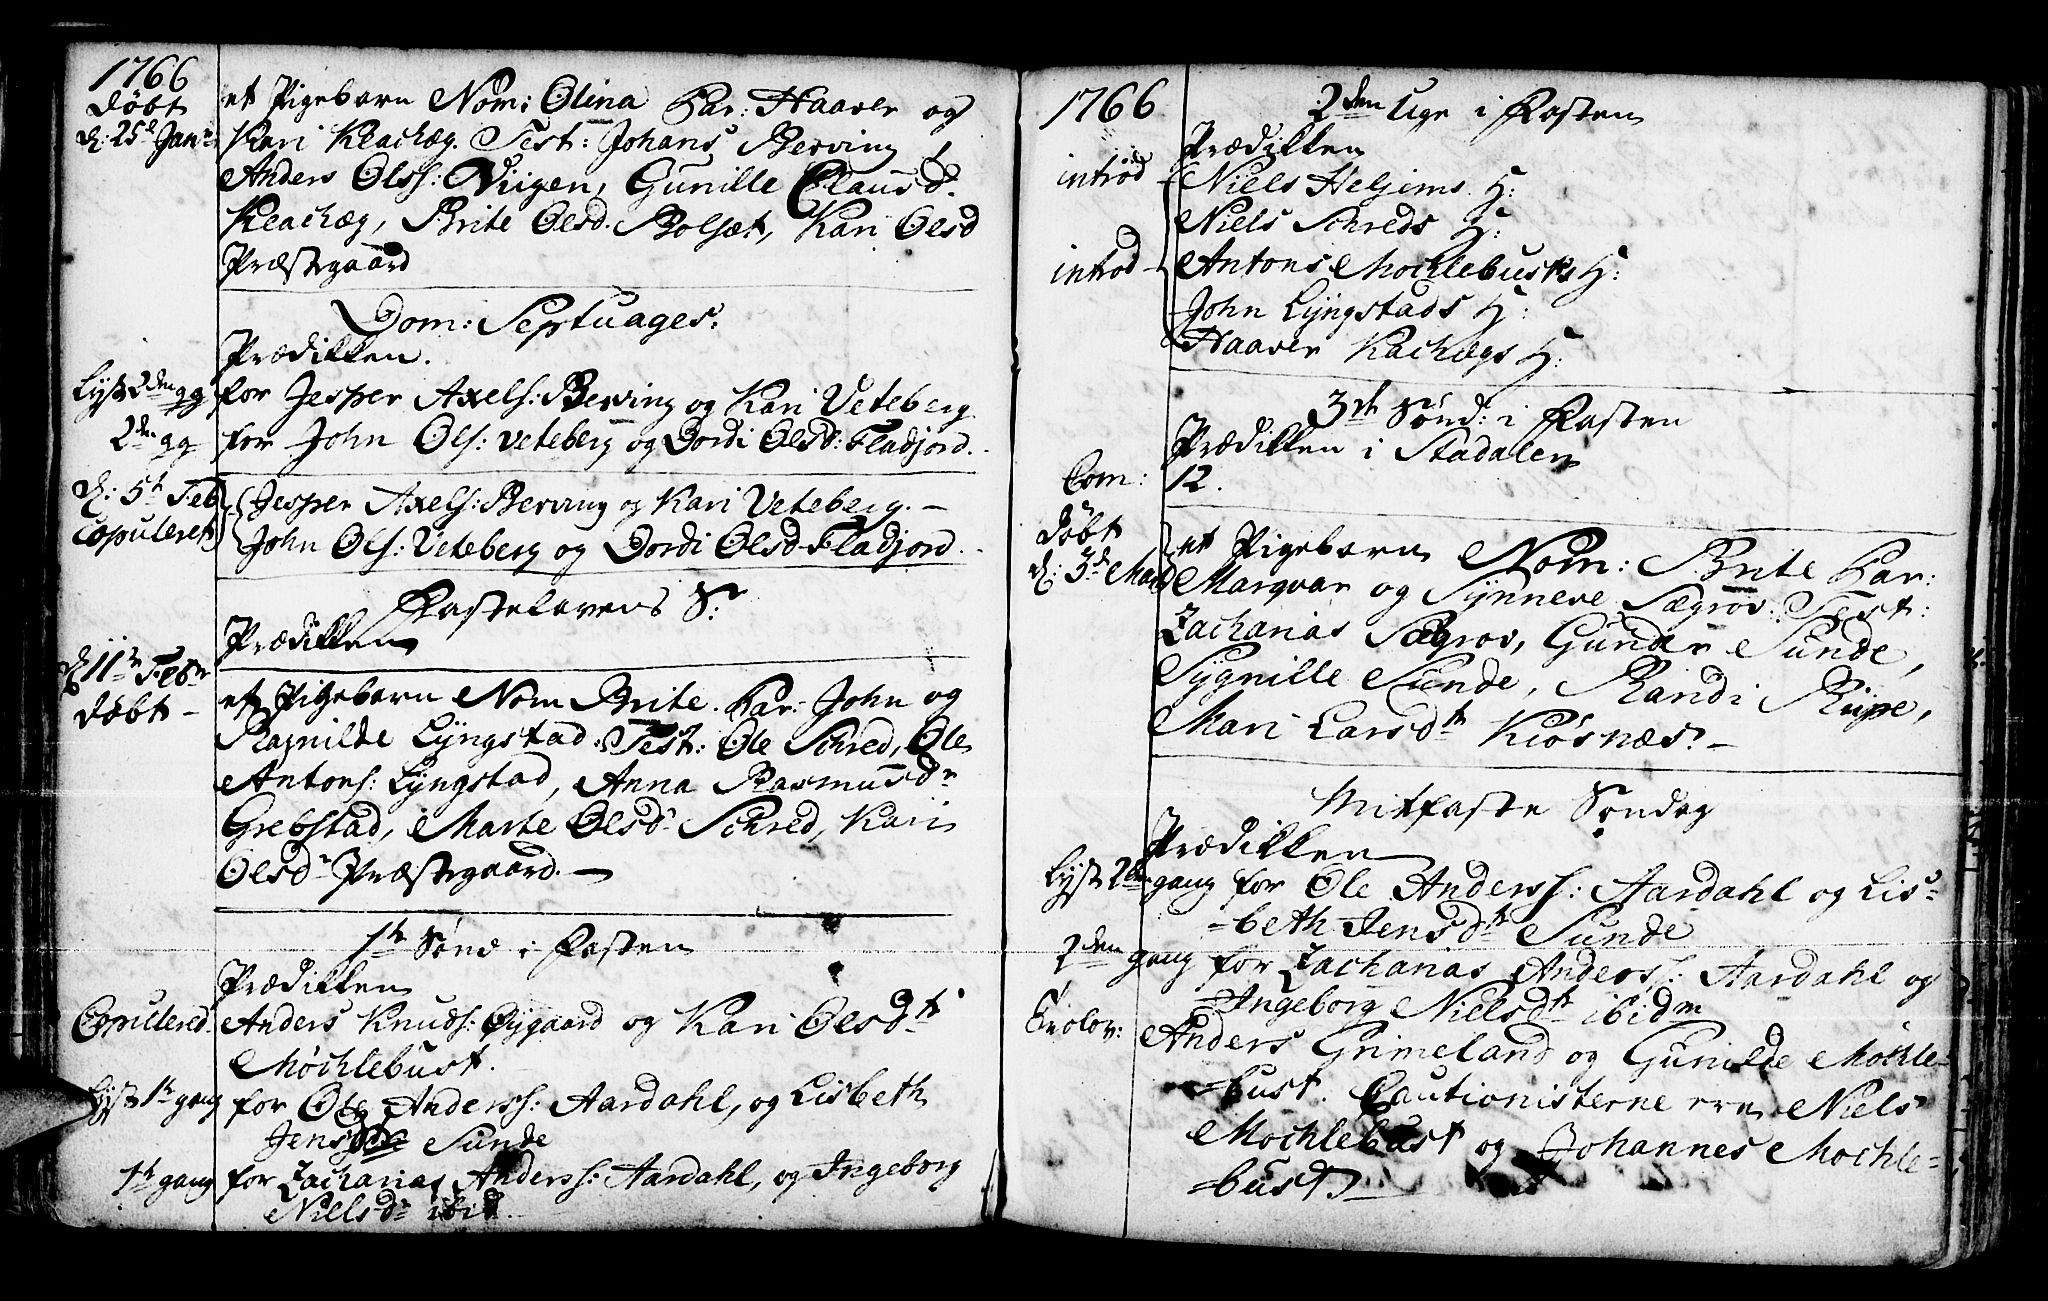 1766
döbt
d: 25de Jan:
et Pigebarn Nom: Olina Par: Haaver og
Kari Klachæg. Test: Johans Berving
Anders Olss: Viigen, Gunille Clausd.
Klachæg, Brite Olsd. Bolsæt, Kari Olsd
Præstegaard
Dom: Septuages:
Prædikken.
Lyst 2den gg for Jesper Axels: Berving og Kari Veteberg
2den gg for John Ols: Veteberg og Dordi Olsd: Fladjord.
d: 5te Feb Jesper Axels: Berving og Kari Veteberg.
Copuleret John Ols: Veteberg og Dordi Olsd Fladjord.
Fastelavens S:
Prædikken
d 11te Febr
döbt
et Pigebarn Nom Brite. Par: John og
Ragnilde Lyngstad: Test: Ole Schred, Ole
Antons: Lyngstad, Anna Rasmusdr
Grebstad, Marte Olsdr Schred, Kari
Olsdr Præstegaard.
1te Sönd i Fasten
Prædikken
Copulered. Anders Knuds: Öygaard og Kari Olsdtr
Möchlebust.
Lyst 1te gang for Ole Anderss: Aardahl, og Lisbeth
Jens Sunde
1te gang for Zacharias Anderss: Aardahl, og Ingeborg
Nielsdr ibid
1766
2den Uge i Fasten
Prædikken
introd Niels Heljems H:
Niels Schreds H:
introd Antons Mochlebusts H:
John Lyngstads H:
Haaver Kachægs H:
3die Sönd: i Fasten
Prædikken i Stadalen
Com: 12.
döbt
d: 3de Mart
et Pigebarn Nom: Brite Par:
Marqvar og Synneve Sægrov: Test:
Zacharias Sægrov, Gunder Sunde,
Sygnille Sunde, Randi Riipe,
Mari Larsdtr Kiösnæs.
Mitfaste Söndag
Prædikken
Lyst 2den gang for Ole Anderss: Aardahl og Lis-
-beth Jensdtr Sunde
2den gang for Zacharias Anderss: Aardahl og
Ingeborg Nielsdtr ibidm
Trolov: Anders Grimeland og Gunilde Möchle-
-bust. Cautionisterne ere Niels
Mochlebust og Johannes Mochle-
-bust